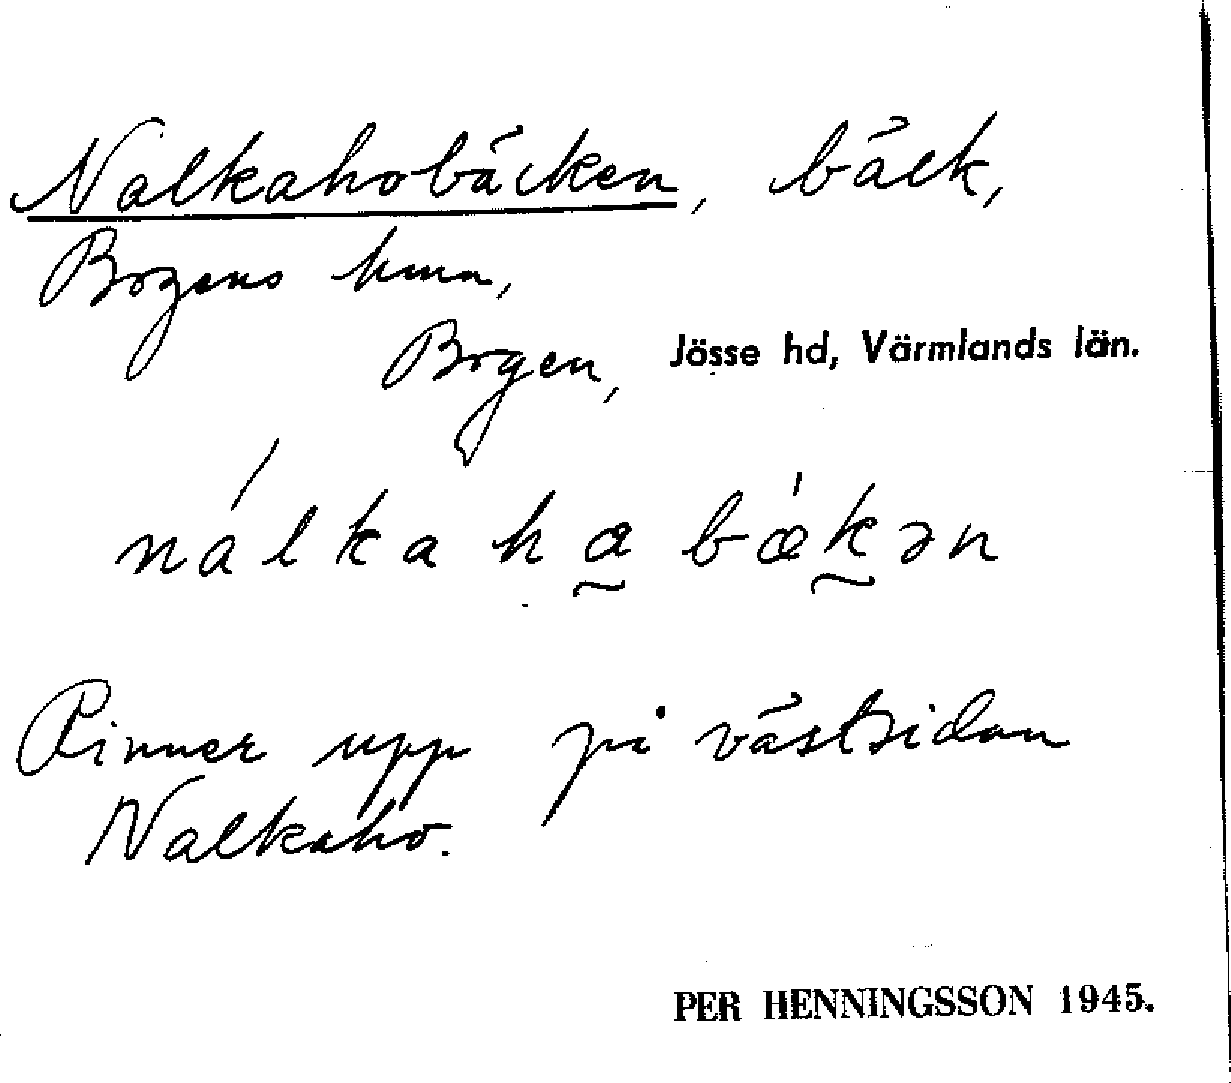 Nalkahobäcken, bäck,
Bogens kmn,
Bogen, Jösse hd, Värmlands län.
Rinner upp på västsidan
Nalkaho.
PER HENNINGSSON 1945.